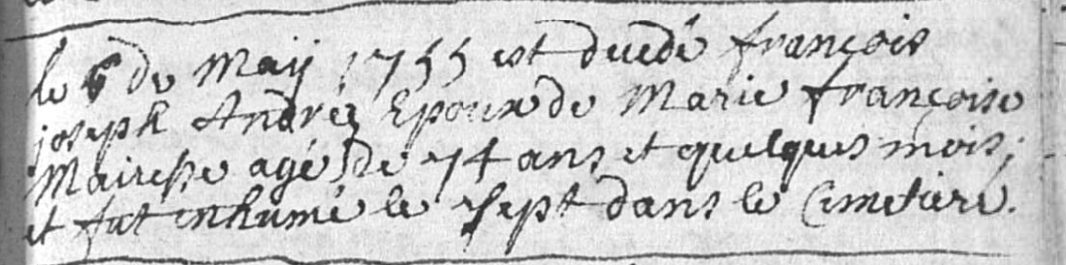 le 6 de Maij 1755 est decedé françois
joseph Andréz Epoux de Marie françoise
Mairesse agé de 74 ans et quelques mois;
et fut inhumé le sept dans le Cimetiere.